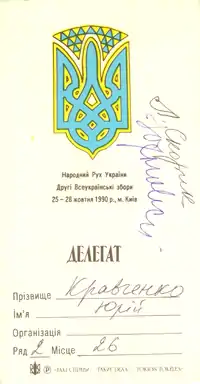 Народний Рух України
Другі Всеукраїнські збори
25 – 28 жовтня 1990 р., м. Київ
ДЕЛЕГАТ
Прізвище Кравченко
Ім'я Юрій
Організація
Ряд 2 Місце 26